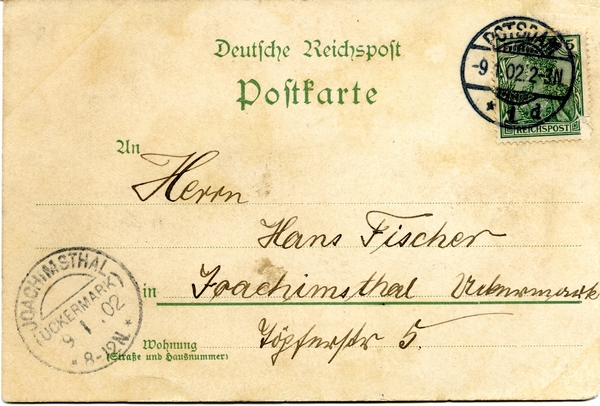 Deutsche Reichspost
Postkarte
POTSDAM
-9.1.02.2-3N.
* 1 d.
5
REICHSPOST
An
Herrn
Hans Fischer
in Joachimsthal Uckermark
Wohnung Töpferstr 5.
(Straße und Hausnummer)
JOACHIMSTHAL
(UCKERMARK)
9 1 .02
* 8-12N. *